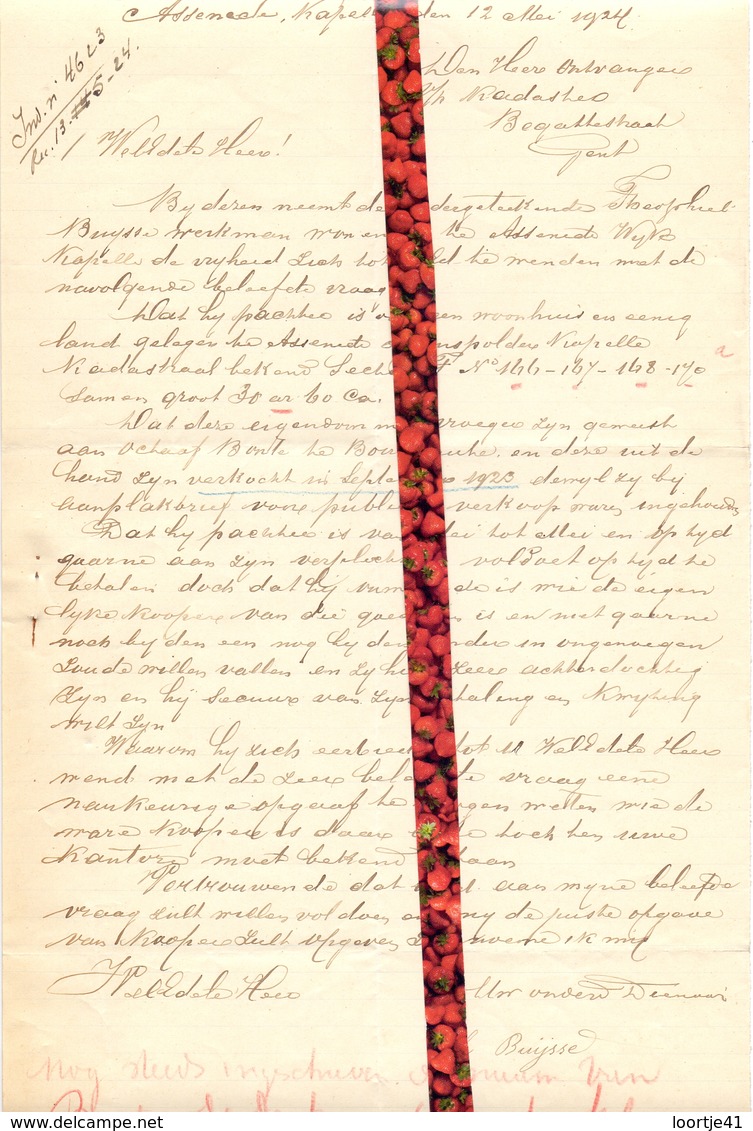 Assenede, Kapelle den 12 Mei 1924.
Ind. n° 4623
Rec. 13.-5-24.
Den Heer Ontvanger
v/h Kadaster
Begattestraat
Gent
WelEdele Heer!
By deze neemt de dergeteekende Theophiel
Buysse werkman won en te Assenede Wyk
Kapelle de vryheid zich tot ld te wenden met de
navolgende beleefde vraag
Dat hy pachter is v en woonhuis en eenig
land gelegen te Assenede nspolder Kapelle
Kadastraal bekend Secti F N° 166-167-168-170 a
samen groot 30 ar 60 Ca.
Dat deze eigendom m vroeger zyn geweest
aan Octaaf Bonte te Bou ute. en deze uit de
hand zyn verkocht in Septe 1923 dewyl zy by
aanplakbrief voor publie verkoop waren ingehouden
Dat hy pachter is van ei tot Mei en op tyd
gaarne aan zyn verplicht voldoet op tyd te
betalen doch dat hy de is wie de eigen
lyke Kooper van die goe en is en niet gaarne
noch by den een nog by den nder in ongenoegen
zoude willen vallen en zy hi zeer achterdochtig
zyn en hy secuur van zyn taling en Kwyting
wilt zyn
Waarom hy zich eerbied tot U WelEdele Heer
wend met de zeer bele de vraag eene
naukeurige opgaaf te gen weten wie de
ware Kooper is daar e toch ten uwe
Kantore moet bekend aan
Vertrouwende dat aan myne beleefde
vraag zult willen voldoen en my de juiste opgave
van Kooper zult opgeven noeme ik mij
WelEdele Heer Uw onderd Dienaar
Buijsse
Nog steeds ingeschreven naam van
loortje41